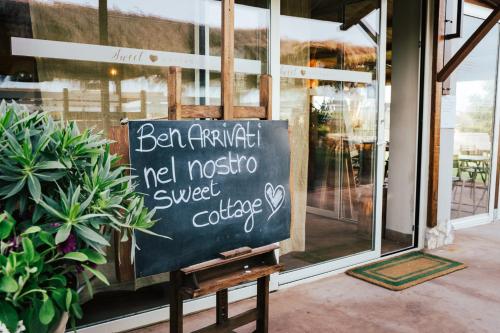 Sweet
Ben ARRivAti
nel nostro
sweet
cottage